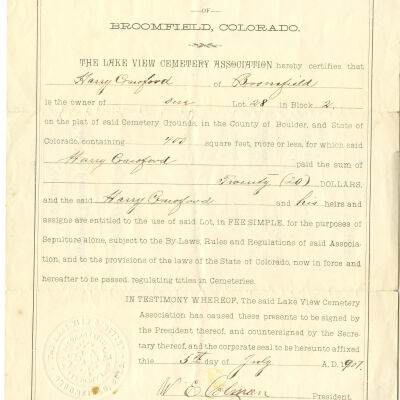 —OF—
BROOMFIELD, COLORADO.
THE LAKE VIEW CEMETERY ASSOCIATION hereby certifies that
Harry Crawford of Broomfield
is the owner of one Lot 28 in Block 2,
on the plat of said Cemetery Grounds, in the County of Boulder, and State of
Colorado, containing 400 square feet, more or less, for which said
Harry Crawford paid the sum of
Twenty (20) DOLLARS,
and the said Harry Crawford and his heirs and
assigns are entitled to the use of said Lot, in FEE SIMPLE, for the purposes of
Sepulture alone, subject to the By-Laws, Rules and Regulations of said Associa-
tion, and to the provisions of the laws of the State of Colorado, now in force and
hereafter to be passed, regulating titles in Cemeteries.
IN TESTIMONY WHEREOF, The said Lake View Cemetery
Association has caused these presents to be signed by
the President thereof, and countersigned by the Secre-
tary thereof, and the corporate seal to be hereunto affixed
this 5th day of July A.D. 1901.
W. E. Colman President.